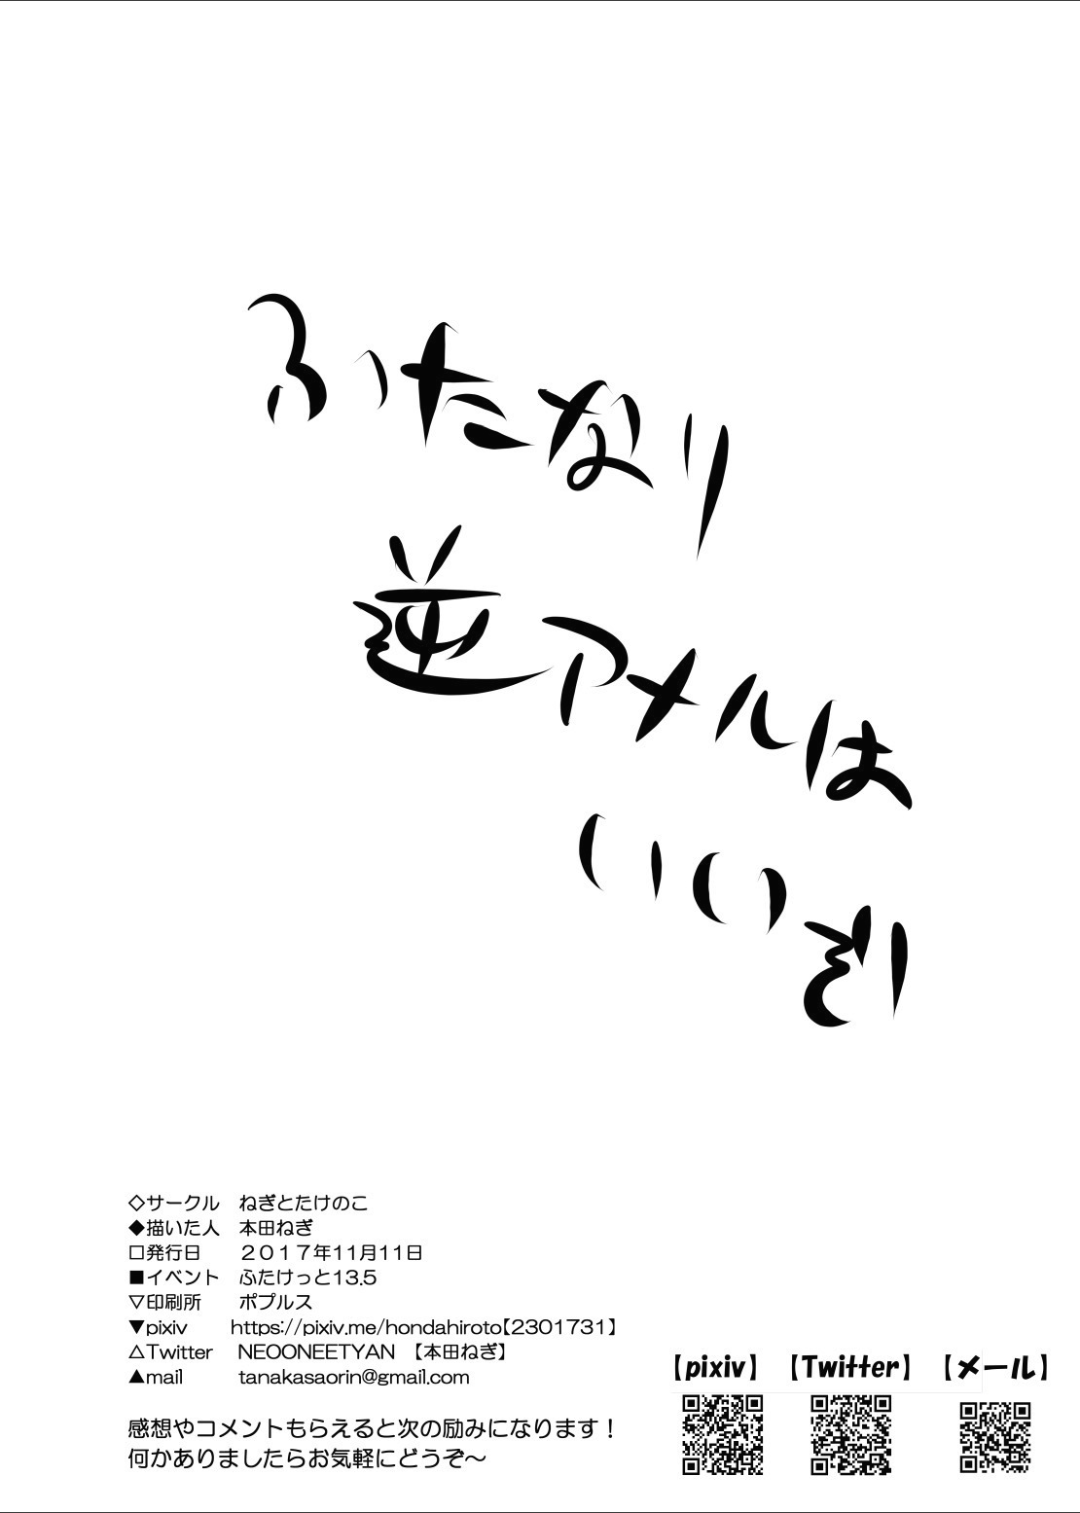 ふたなり
逆アメルは
いいぞ!
◇サークル ねぎとたけのこ
◆描いた人 本田ねぎ
□発行日 2017年11月11日
■イベント ふたけっと13.5
▽印刷所 ポプルス
▼pixiv https://pixiv.me/hondahiroto【2301731】
△Twitter NEOONEETYAN 【本田ねぎ】
▲mail tanakasaorin@gmail.com
感想やコメントもらえると次の励みになります!
何かありましたらお気軽にどうぞ~
【pixiv】 【Twitter】 【メール】